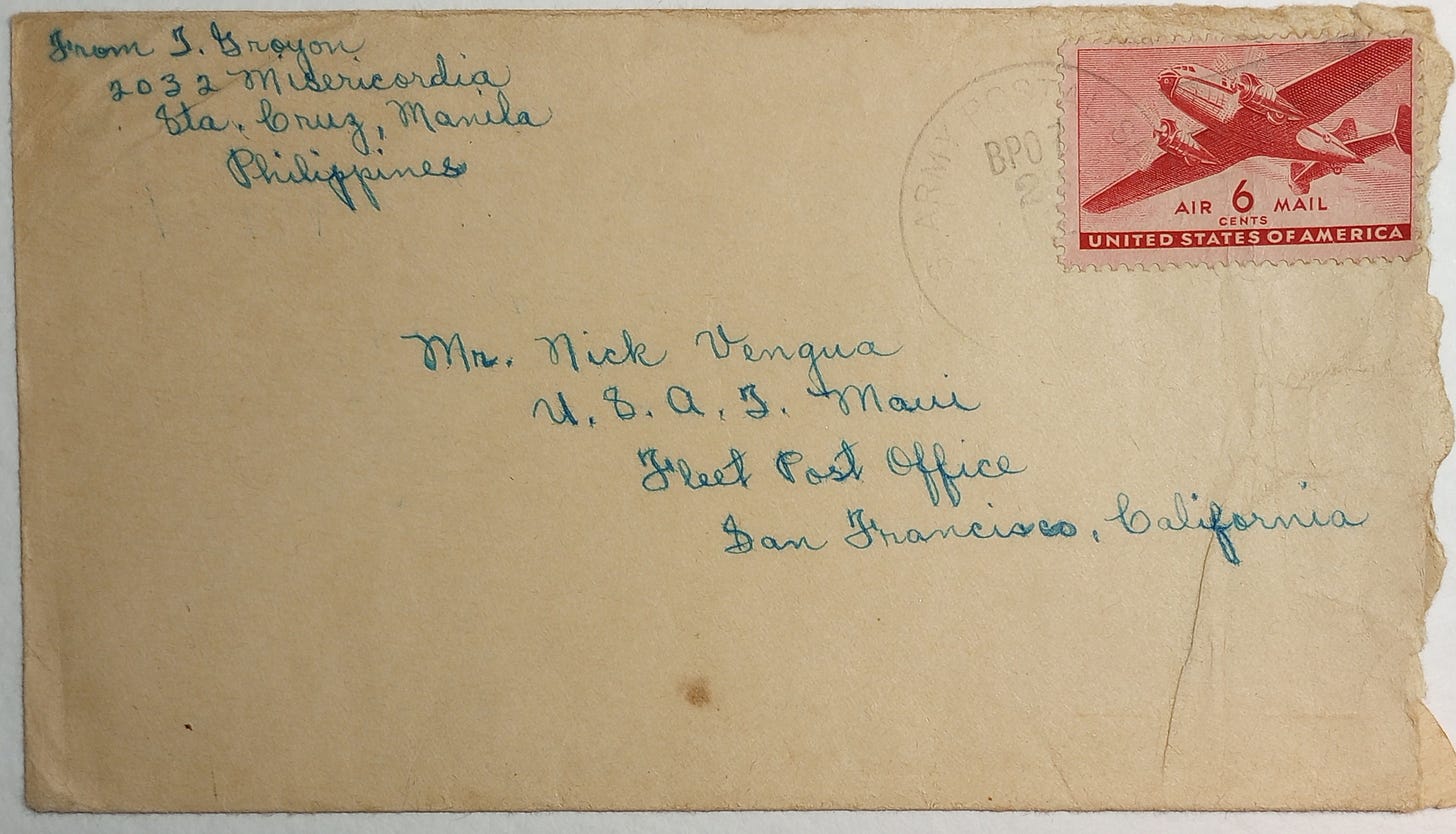 From T. Groyon
2032 Misericordia
Sta. Cruz, Manila
Philippines
ARMY POST
BPO
2
AIR 6 MAIL
CENTS
UNITED STATES OF AMERICA
Mr. Nick Vengua
U. S. A. T. Maui
Fleet Post Office
San Francisco, California